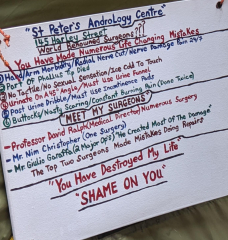 "St Peter's Andrology Centre"
145 Harley Street
World Renowned Surgeons???
You Have Made Numerous Life Changing Mistakes
Hand/Arm Mortality/Radial Nerve Cut/Nerve Damage Pain 24/7
Part Of Phallus Tip Died
No Tactile/No Sexual Sensation/Ice Cold To Touch
Urinate On A 45° Angle/Must Use Urinals
Post Urine Dribble/Must Use Incontinence Pads
Buttocks/Nasty Scaring/Constant Burning Pain (Done Twice)
"MEET MY SURGEONS"
- Professor David Ralph (Medical Director) Numerous Surgery
- Mr. Nim Christopher (One Surgery)
- Mr. Giulio Garaffa (2 Major OPS) "He Created Most Of The Damage"
The Top Two Surgeons Made Mistakes Doing Repairs
"You Have Destroyed My Life"
"SHAME ON YOU"